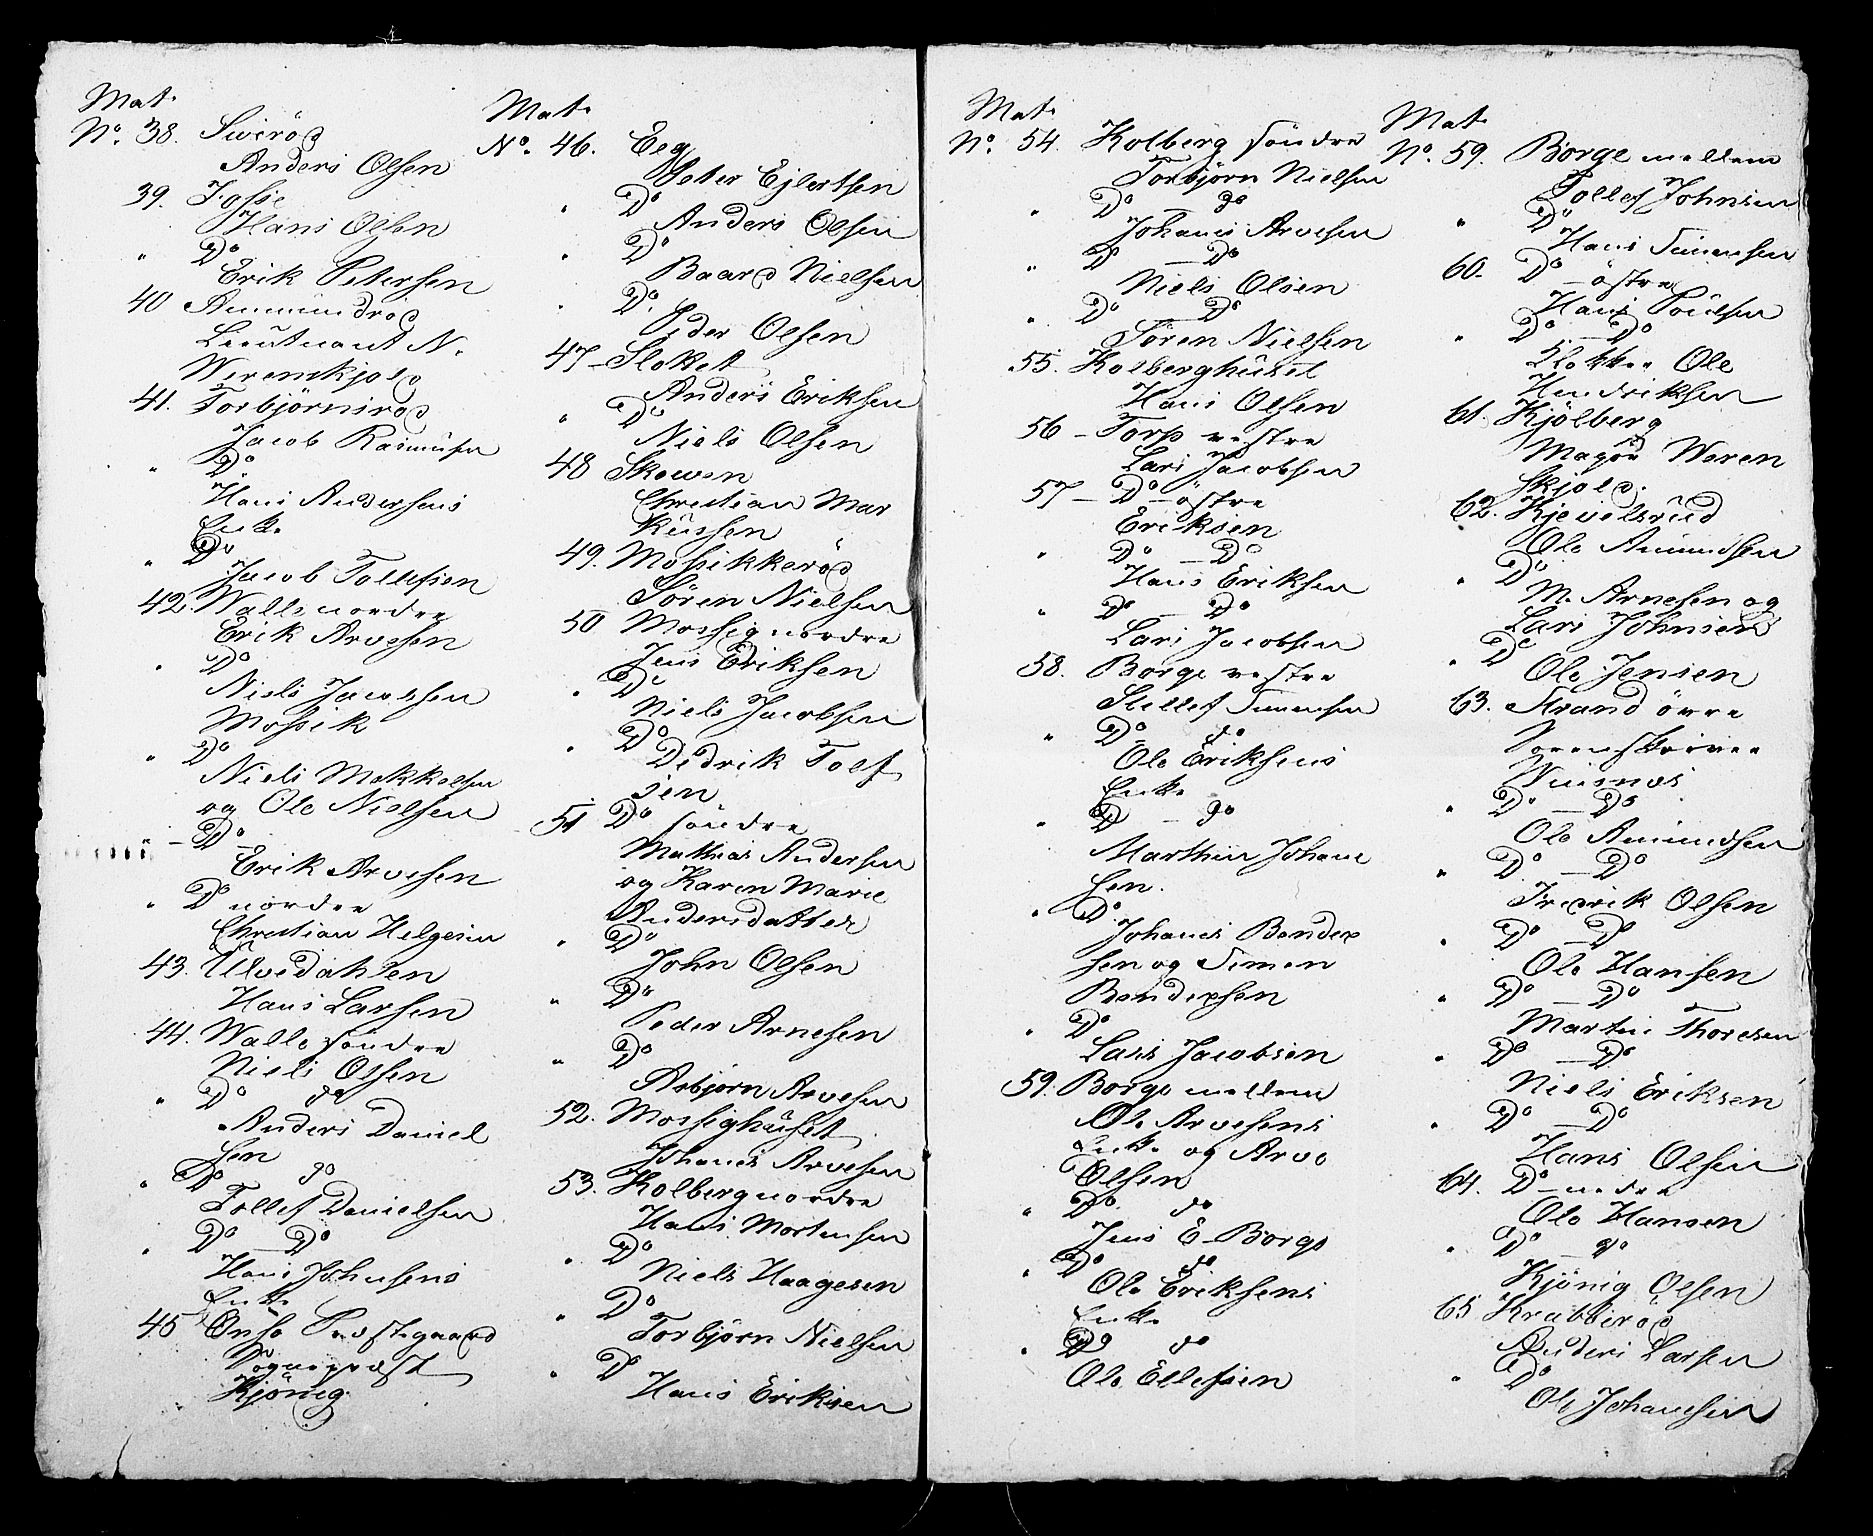 Mat.
No. 38. Swerös
Anders Olsen
39. Fosse
Hans Olsen
" Do
Erik Petersen
40 Ammundrös
Lieutnant N.
Werenskjold
41. Torbjörnsrös
Jacob Rasmüsen
" Do
Hans Andersens
Enke
" Do
Jacob Tollefsen
42. Walle nordre
Erik Arvesen
" Do
Niels Jacobsen
Mossik
" Do
Niels Mekkelsen
og Ole Nielsen
" - Do -
Erik Arvesen
" Do nordre
Christian Helgesen
43. Ülvedahlen
Hans Larsen
44. Walle söndre
Niels Olsen
" Do do
Anders Daniel
sen
" Do do
Tollef Danielsen
" Do - Do
Hans Johnsens
Enke
45 Onsö Præstegaard
Sognepræst
Kjönig
Mat.
No. 46. Eeg
Peter Ejlertsen
" Do
Anders Olsen
" Do
Baard Nielsen
" Do
Peder Olsen
47 - Sloket
Anders Eriksen
" Do
Niels Olsen
48 Skowen
Christian Mar
küssen
49. Mossikkerös
Sören Nielsen
50 Mossig nordre
Jens Eriksen
" Do
Niels Jacobsen
" Do
Dedrik Tolf
sen
51 Do söndre
Mathias Andersen
og Karen Marie
Andersdatter
" Do
John Olsen
" Do
Peder Arnesen
" Do
Asbjørn Arvesen
52. Mossighüset
Johanes Arvesen
53. Kolberg nordre
Hans Mortensen
" Do
Niels Haagesen
" Do
Torbjörn Nielsen
" Do
Hans Eriksen
Mat.
No. 54. Kolberg söndre
Torbjörn Nielsen
" Do - do
Johanes Arvesen
" Do - Do
Niels Olsen
" Do - Do
Sören Nielsen
55. Kolberghüset
Hans Olsen
56 - Torp vestre
Lars Jacobsen
57 - Do - östre
Eriksen
" Do - Do
Hans Eriksen
" Do - Do
Lars Jacobsen
58. Borge vestre
Stellef Simensen
" Do - do
Ole Eriksens
Enke
" Do - do
Marthin Johane
sen.
" Do
Johanes Bendex
sen og Simen
Bendexsen
" Do
Lars Jacobsen
59. Borge mellem
Ole Arvesens
Enke og Arve
Olsen
" Do. do
Jens E. Borge
" Do do
Ole Eriksens
Enke
" Do do
Ole Ellefsen
Mat.
No. 59. Borge mellem
Tollef Johnsen
" Do
Hans Simensen
60. Do - östre
Hans Poulsen
" Do - Do
Klokker Ole
Hendriksen
61. Kjölberg
Major Weren
skjold.
62. Kjevelsrüd
Ole Amundsen
" Do
M. Arnesen og
Lars Johnsen
" Do
Ole Jensen
63. Strand övre
Sorenskriver
" Do - Do
Ole Amundsen
" Do - Do
Fredrik Olsen
" Do - Do
Ole Hansen
" Do - Do
Martin Thoresen
" Do - Do
Niels Eriksen
" Do - Do
Hans Olsen
64. Do - nedre
Ole Hansen
" Do - do
Kjönig Olsen
65 Krabberös
Anders Larsen
" Do
Ole Johanesen